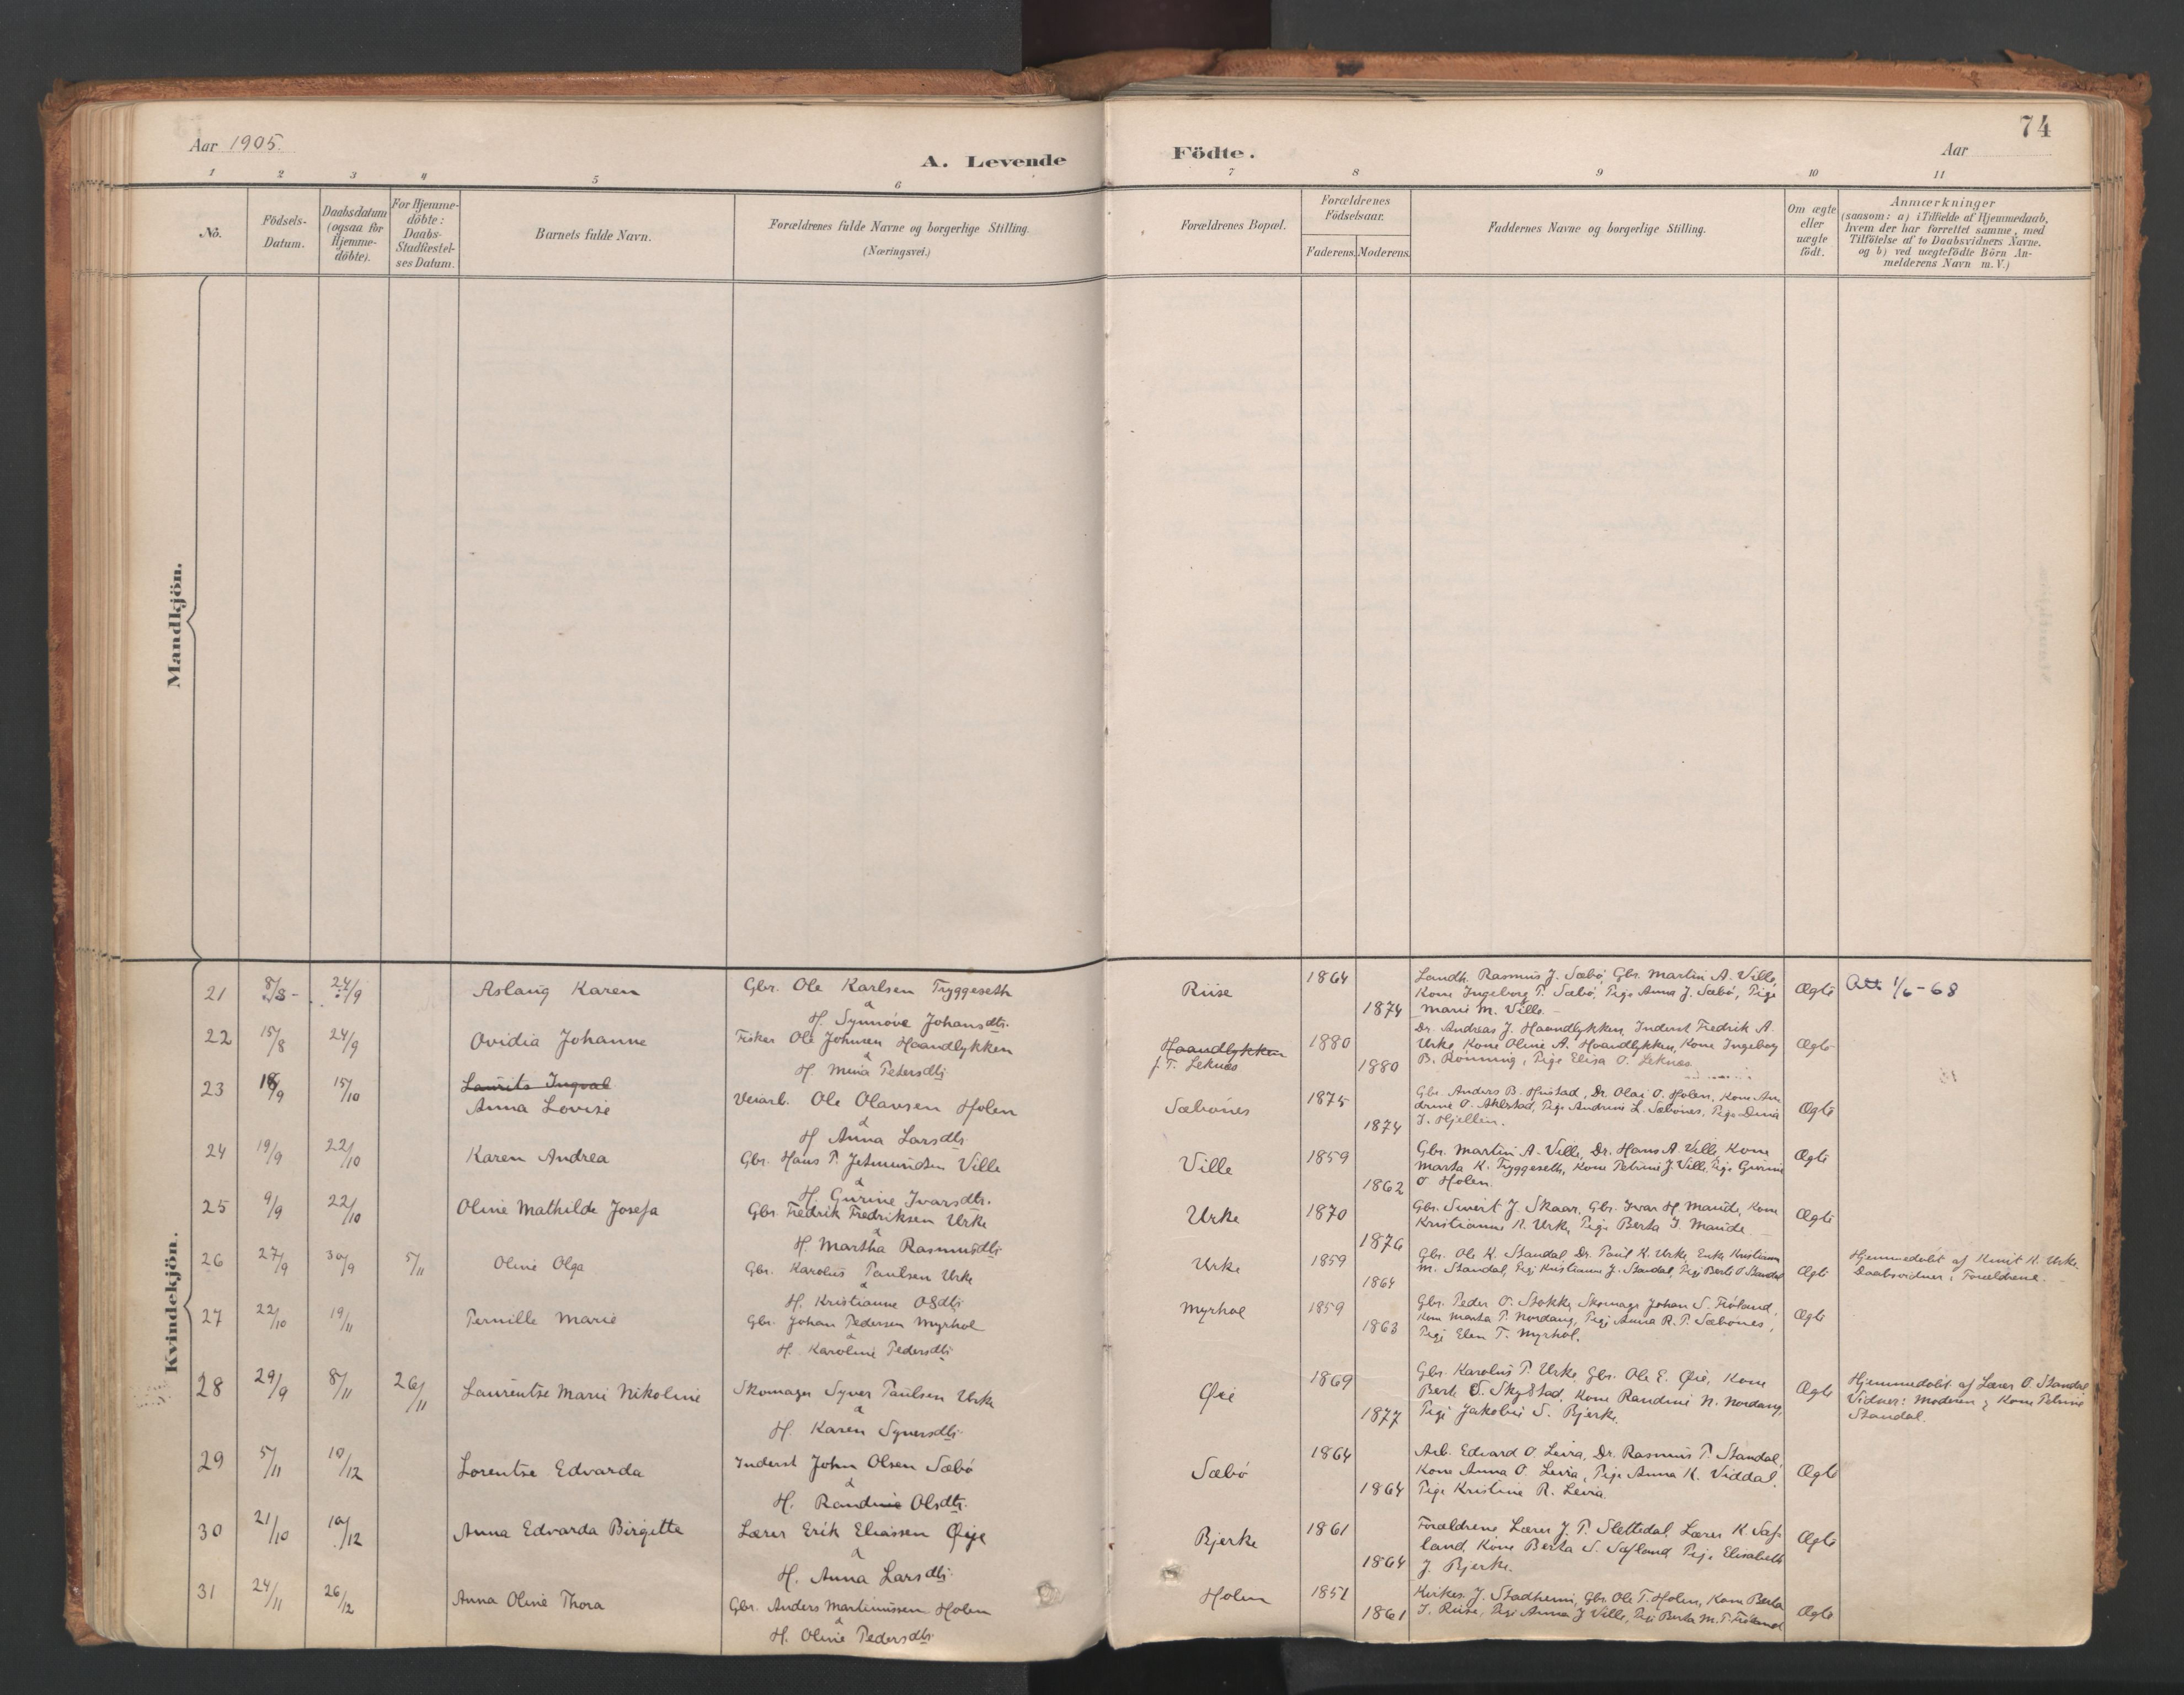 74
Aar 1905.
A. Levende Födte.
Aar
1 2 3 4 5 6 7 8 9 10 11
No.
Födsels-
Datum.
Daabsdatum
(ogsaa for
Hjemme-
döbte).
For Hjemme-
döbte:
Daabs-
Stadfæstel-
ses Datum.
Barnets fulde Navn.
Forældrenes fulde Navne og borgerlige Stilling.
(Næringsvei.)
Forældrenes Bopæl.
Forældrenes
Födselsaar.
Faderens. Moderens.
Faddernes Navne og borgerlige Stilling.
Om ægte
eller
uægte
födt.
Anmærkninger
(saasom: a) i Tilfælde af Hjemmedaab,
hvem der har forrettet samme, med
Tilföielse af to Daabsvidners Navne.
og b) ved uægtefödte Börn An-
melderens Navn m. V.)
Mandkjön.
Kvindekjön.
21 8/8 - 24/9 Aslaug Karen
Gbr. Ole Karlsen Tryggeseth
&
H. Synnöve Johansdtr.
Riise 1864 1874
Landh. Rasmus J. Sæbö, Gbr. Martin A. Ville,
Kone Ingeborg P. Sæbö, Pige Anna J. Sæbö, Pige
Marie M. Ville.
Ægte
Att 1/6-68
22 15/8 24/9 Ovidia Johanne
Fisker Ole Johnsen Haandlykken
&
H. Mina Petersdtr
Haandlykken
f. T. Leknæs
1880 1880
Dr. Andreas J. Haandlykken, Inderst Fredrik A.
Urke, Kone Oline A. Haandlykken, Kone Ingeborg
B. Rönning, Pige Elisa O. Leknæs.
Ægte
23 18/9 15/10
Laurits Ingval
Anna Lovise
Verarb. Ole Olausen Holen
&
H Anna Larsdtr
Sæbönes 1875 1874
Gbr. Anders B. Hustad, Dr. Olai O. Holen, Kone An-
drine O. Aklestad, Pige Andrine L. Sæbönes, Pige Dina
J. Hjellen.
Ægte
24 19/9 22/10 Karen Andrea
Gbr. Hans P. Jetmundsen Ville
&
H. Gurine Ivarsdtr.
Ville 1859 1862
Gbr. Martin A. Ville, Dr. Hans A. Ville, Kone
Marta K. Tryggeseth, Kone Petrine J. Ville, Pige Gurine
O. Holen.
Ægte
25 9/9 22/10 Oline Mathilde Josefa
Gbr. Fredrik Fredriksen Urke
&
H. Martha Rasmusdtr
Urke 1870 1876
Gbr. Sivert J. Skaar, Gbr. Ivar H. Maude, Kone
Kristianne K. Urke, Pige Berta J. Maude.
Ægte
26 27/9 30/9 5/11 Oline Olga
Gbr. Karolus Paulsen Urke
&
H. Kristianne Olsdtr
Urke 1859 1864
Gbr. Ole K. Standal, Dr. Paul K. Urke, Enke Kristianne
M. Standal, Pige Kristianne J. Standal, Pige Berte O Standal
Ægte
Hjemmedöbt af Knut K. Urke.
Daabsvidner: Forældrene.
27 22/10 19/11 Pernille Marie
Gbr. Johan Pedersen Myrhol
&
H. Karoline Pedersdtr
Myrhol 1859 1863
Gbr. Peder O. Stokke, Skomager Johan S. Fröland,
Kone Marta P. Nordang, Pige Anna R. P. Sæbönes,
Pige Elen T. Myrhol.
Ægte
28 29/9 8/11 26/11 Laurentse Marie Nikoline
Skomager Syver Paulsen Urke
&
H. Karen Syversdtr
Øie 1869 1877
Gbr. Karolus P. Urke, Gbr. Ole E. Øie, Kone
Berte S. Skylstad, Kone Randine N. Nordang,
Pige Jakobie S. Bjerke.
Ægte
Hjemmedöbt af Lærer O. Standal
Vidner: Moderen & Kone Petrine
Standal.
29 5/11 10/12 Lorentse Edvarda
Inderst John Olsen Sæbö
&
H. Randine Olsdtr.
Sæbö 1864 1864
Arb. Edvard O. Leira, Dr. Rasmus P. Standal,
Kone Anna O. Leira, Pige Anna K. Viddal.
Pige Kristine R. Leira.
Ægte
30 21/10 10/12 Anna Edvarda Birgitte
Lærer Erik Eliassen Øye
&
H. Anna Larsdtr
Bjerke 1861 1864
Forældrene, Lærer J. P. Slettedal, Lærer K. Sæf-
land, Kone Berta S. Sæfland, Pige Elisabeth
J. Bjerke.
Ægte
31 24/11 26/12 Anna Oline Thora
Gbr. Anders Martinussen Holen
&
H. Oline Pedersdtr
Holen 1851 1861
Kirkes. J. Stadheim, Gbr. Ole T. Holen, Kone Berta
J. Riise, Pige Anna J Ville, Pige Berta M. P. Fröland
Ægte